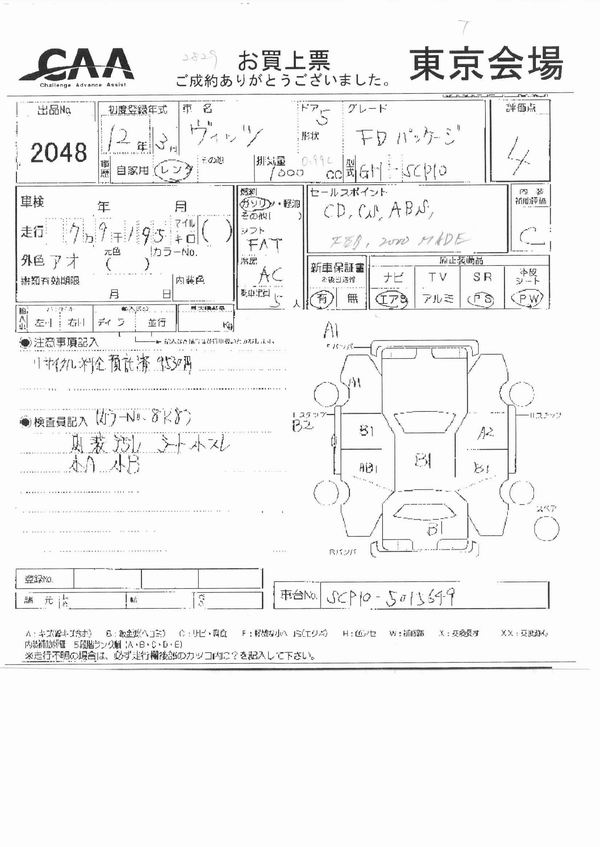 7
2829
CAA
Challenge Advance Assist
お買上票
ご成約ありがとうございました。
東京会場
出品No.
2048
初度登録年式
12年 3月
車歴
自家用 レンタ
その他
車名
ヴィッツ
ドア 5
形状
グレード
FD パッケージ
排気量
1000 cc
型式
GH - SCP10
評価点
4
車検 年 月
走行 7万9千195 マイル キロ ( )
外色 アオ 元色 ( ) カラーNo.
書類有効期限 月 日
内装色
燃料
ガソリン・軽油
その他( )
シフト
FAT
冷房
AC
乗車定員
5人
セールスポイント
CD, CS, ABS,
2000 MADE
内装
補助評価
C
新車保証書
有 無
純正装備品
ナビ TV SR 革シート
エアB アルミ PS PW
左ハ 右ハ ディーラ 並行
Kg
●注意事項記入
リサイクル料金預託済 9530円
●検査員記入 カラーNo. 8K8
内装汚レ シート小スレ
小A 小B
A1
Fバンパ
A1
B2
B1
A2
AB1
B1
B1
B1
スペア
Rバンパ
登録No.
諸元
車台No.
SCP10-5015649
※走行不明の場合は、必ず走行欄後部のカッコ内に?を記入して下さい。